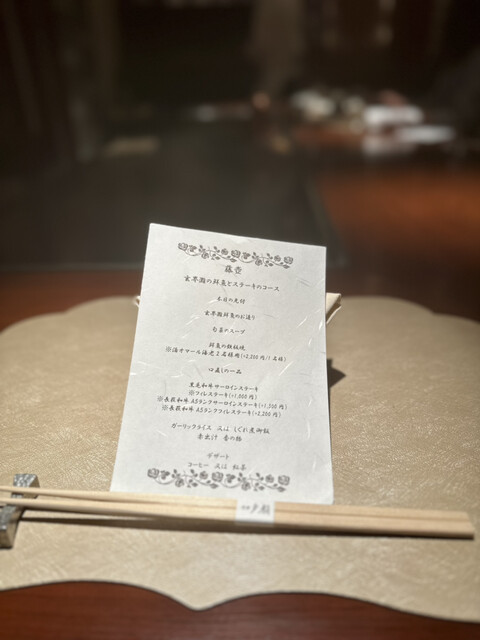 玄界灘の鮮魚とステーキのコース
本日の先付
玄界灘鮮魚のお造り
旬菜のスープ
鮮魚の鉄板焼
※活オマール海老2名様用(+2,200円/1名様)
口直しの一品
黒毛和牛サーロインステーキ
※フィレステーキ(+1,000円)
※長萩和牛A5ランクサーロインステーキ(+1,300円)
※長萩和牛A5ランクフィレステーキ(+2,200円)
ガーリックライス 又は しぐれ煮御飯
赤出汁 香の物
デザート
コーヒー 又は 紅茶